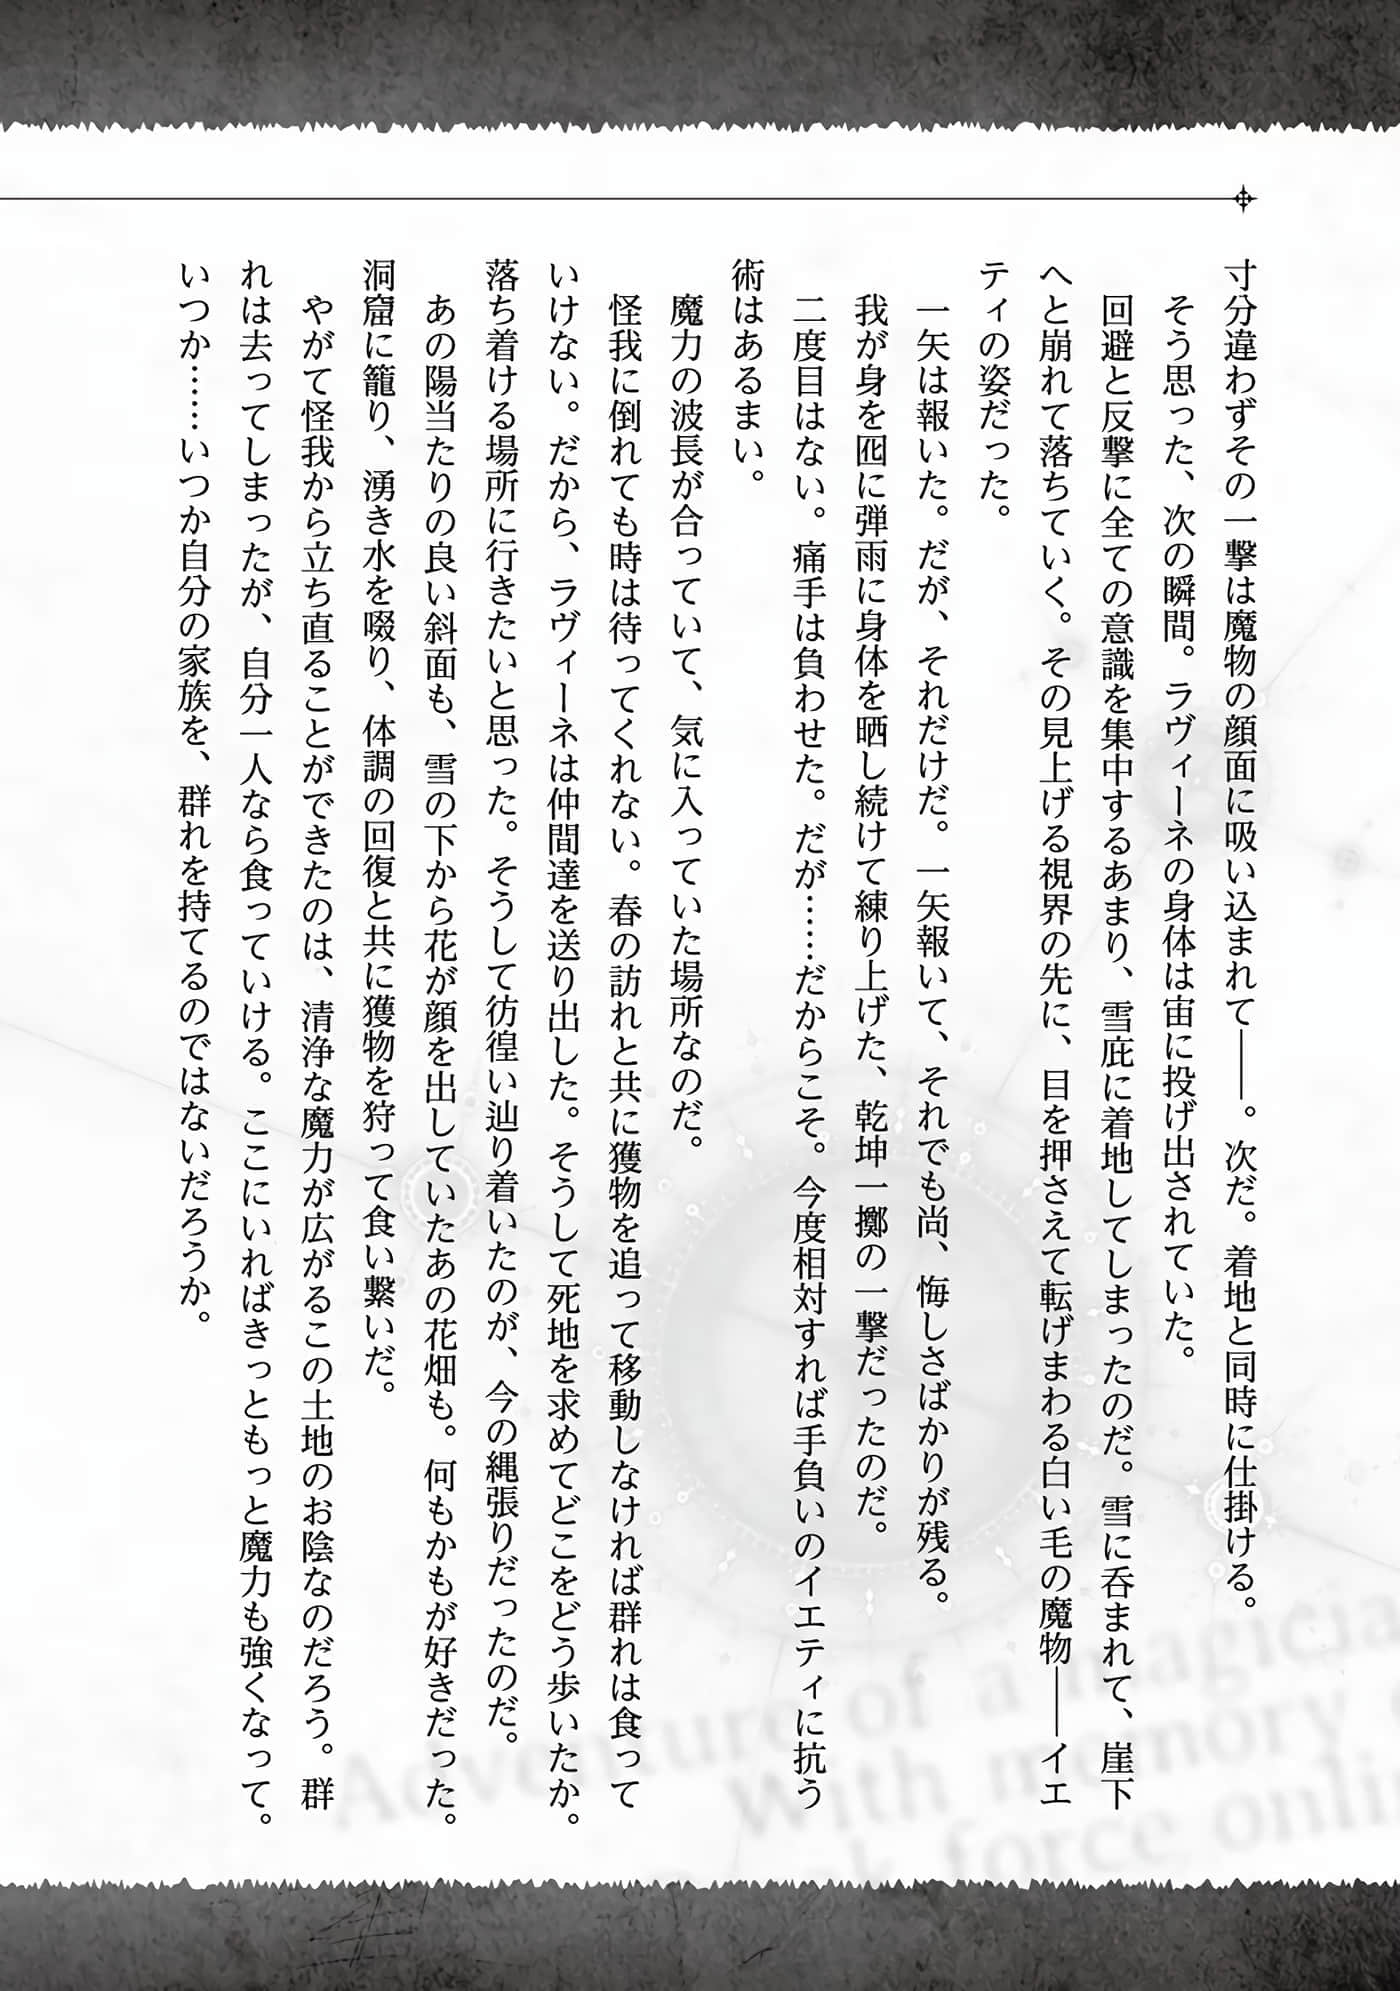 寸分違わずその一撃は魔物の顔面に吸い込まれて――。次だ。着地と同時に仕掛ける。
そう思った、次の瞬間。ラヴィーネの身体は宙に投げ出されていた。
回避と反撃に全ての意識を集中するあまり、雪庇に着地してしまったのだ。雪に呑まれて、崖下
へと崩れて落ちていく。その見上げる視界の先に、目を押さえて転げまわる白い毛の魔物――イエ
ティの姿だった。
一矢は報いた。だが、それだけだ。一矢報いて、それでも尚、悔しさばかりが残る。
我が身を囮に弾雨に身体を晒し続けて練り上げた、乾坤一擲の一撃だったのだ。
二度目はない。痛手は負わせた。だが……だからこそ。今度相対すれば手負いのイエティに抗う
術はあるまい。
魔力の波長が合っていて、気に入っていた場所なのだ。
怪我に倒れても時は待ってくれない。春の訪れと共に獲物を追って移動しなければ群れは食って
いけない。だから、ラヴィーネは仲間達を送り出した。そうして死地を求めてどこをどう歩いたか。
落ち着ける場所に行きたいと思った。そうして彷徨い辿り着いたのが、今の縄張りだったのだ。
あの陽当たりの良い斜面も、雪の下から花が顔を出していたあの花畑も。何もかもが好きだった。
洞窟に籠り、湧き水を啜り、体調の回復と共に獲物を狩って食い繋いだ。
やがて怪我から立ち直ることができたのは、清浄な魔力が広がるこの土地のお陰なのだろう。群
れは去ってしまったが、自分一人なら食っていける。ここにいればきっともっと魔力も強くなって。
いつか……いつか自分の家族を、群れを持てるのではないだろうか。
Adventure of a magicia
With memory
force onli